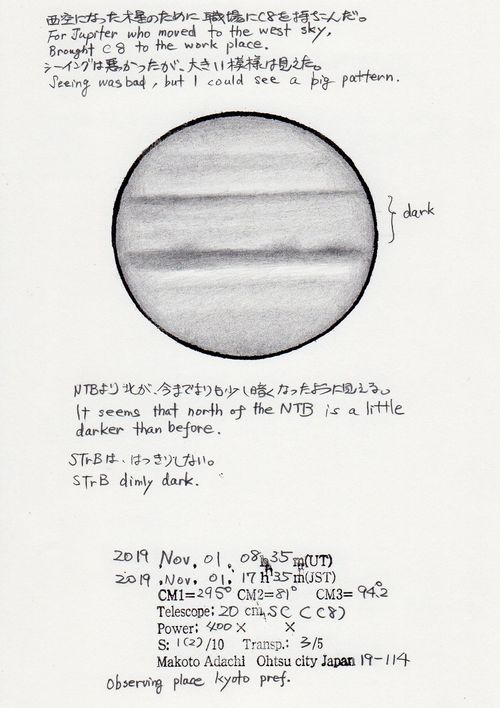 西空になった木星のために職場にC8を持ちこんだ。
For Jupiter who moved to the west sky,
Brought C8 to the work place.
シーイングは悪かったが、大きい模様は見えた。
Seeing was bad, but I could see a big pattern.
dark
NTBより北が、今までよりも少し暗くなったように見える。
It seems that north of the NTB is a little
darker than before.
STrBは、はっきりしない。
STrB dimly dark.
2019 .Nov. 01. 08h 35 m(UT)
2019 .Nov. 01. 17 h 35 m(JST)
CM1=295° CM2=81° CM3= 94.2°
Telescope: 20 cm, SC (C8)
Power: 400 × ×
S: 1(2)/10 Transp.: 3/5
Makoto Adachi Ohtsu city Japan 19-114
Observing place kyoto pref.